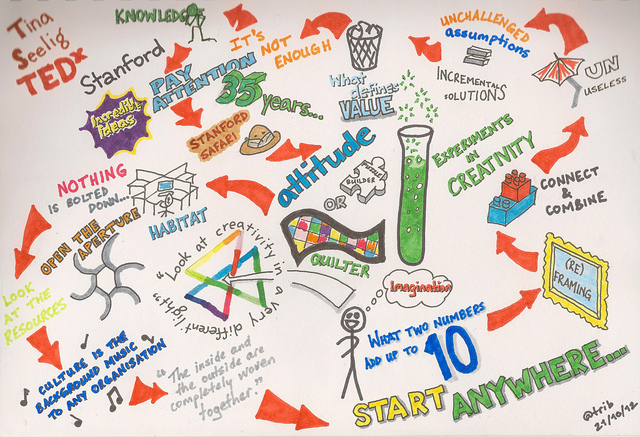 Tina
Seelig
TEDx
KNOWLEDGE
Stanford
PAY
ATTENTION
IT'S
NOT
ENOUGH
35
years...
Incredible
ideas
STANFORD
SAFARI
What
defines
VALUE
UNCHALLENGED
assumptions
INCREMENTAL
SOLUTIONS
UN
USELESS
EXPERIMENTS
IN
CREATIVITY
CONNECT
&
COMBINE
(RE)
FRAMING
attitude
PUZZLE
BUILDER
OR
QUILTER
NOTHING
IS BOLTED
DOWN...
HABITAT
OPEN THE
APERTURE
LOOK
AT THE
RESOURCES
"Look at creativity in a very different light"
Imagination
WHAT TWO NUMBERS
ADD UP TO 10
CULTURE IS THE
BACKGROUND MUSIC
TO ANY ORGANISATION
"The inside and
the outside are
completely woven
together."
START ANYWHERE...
@trib
21/10/12